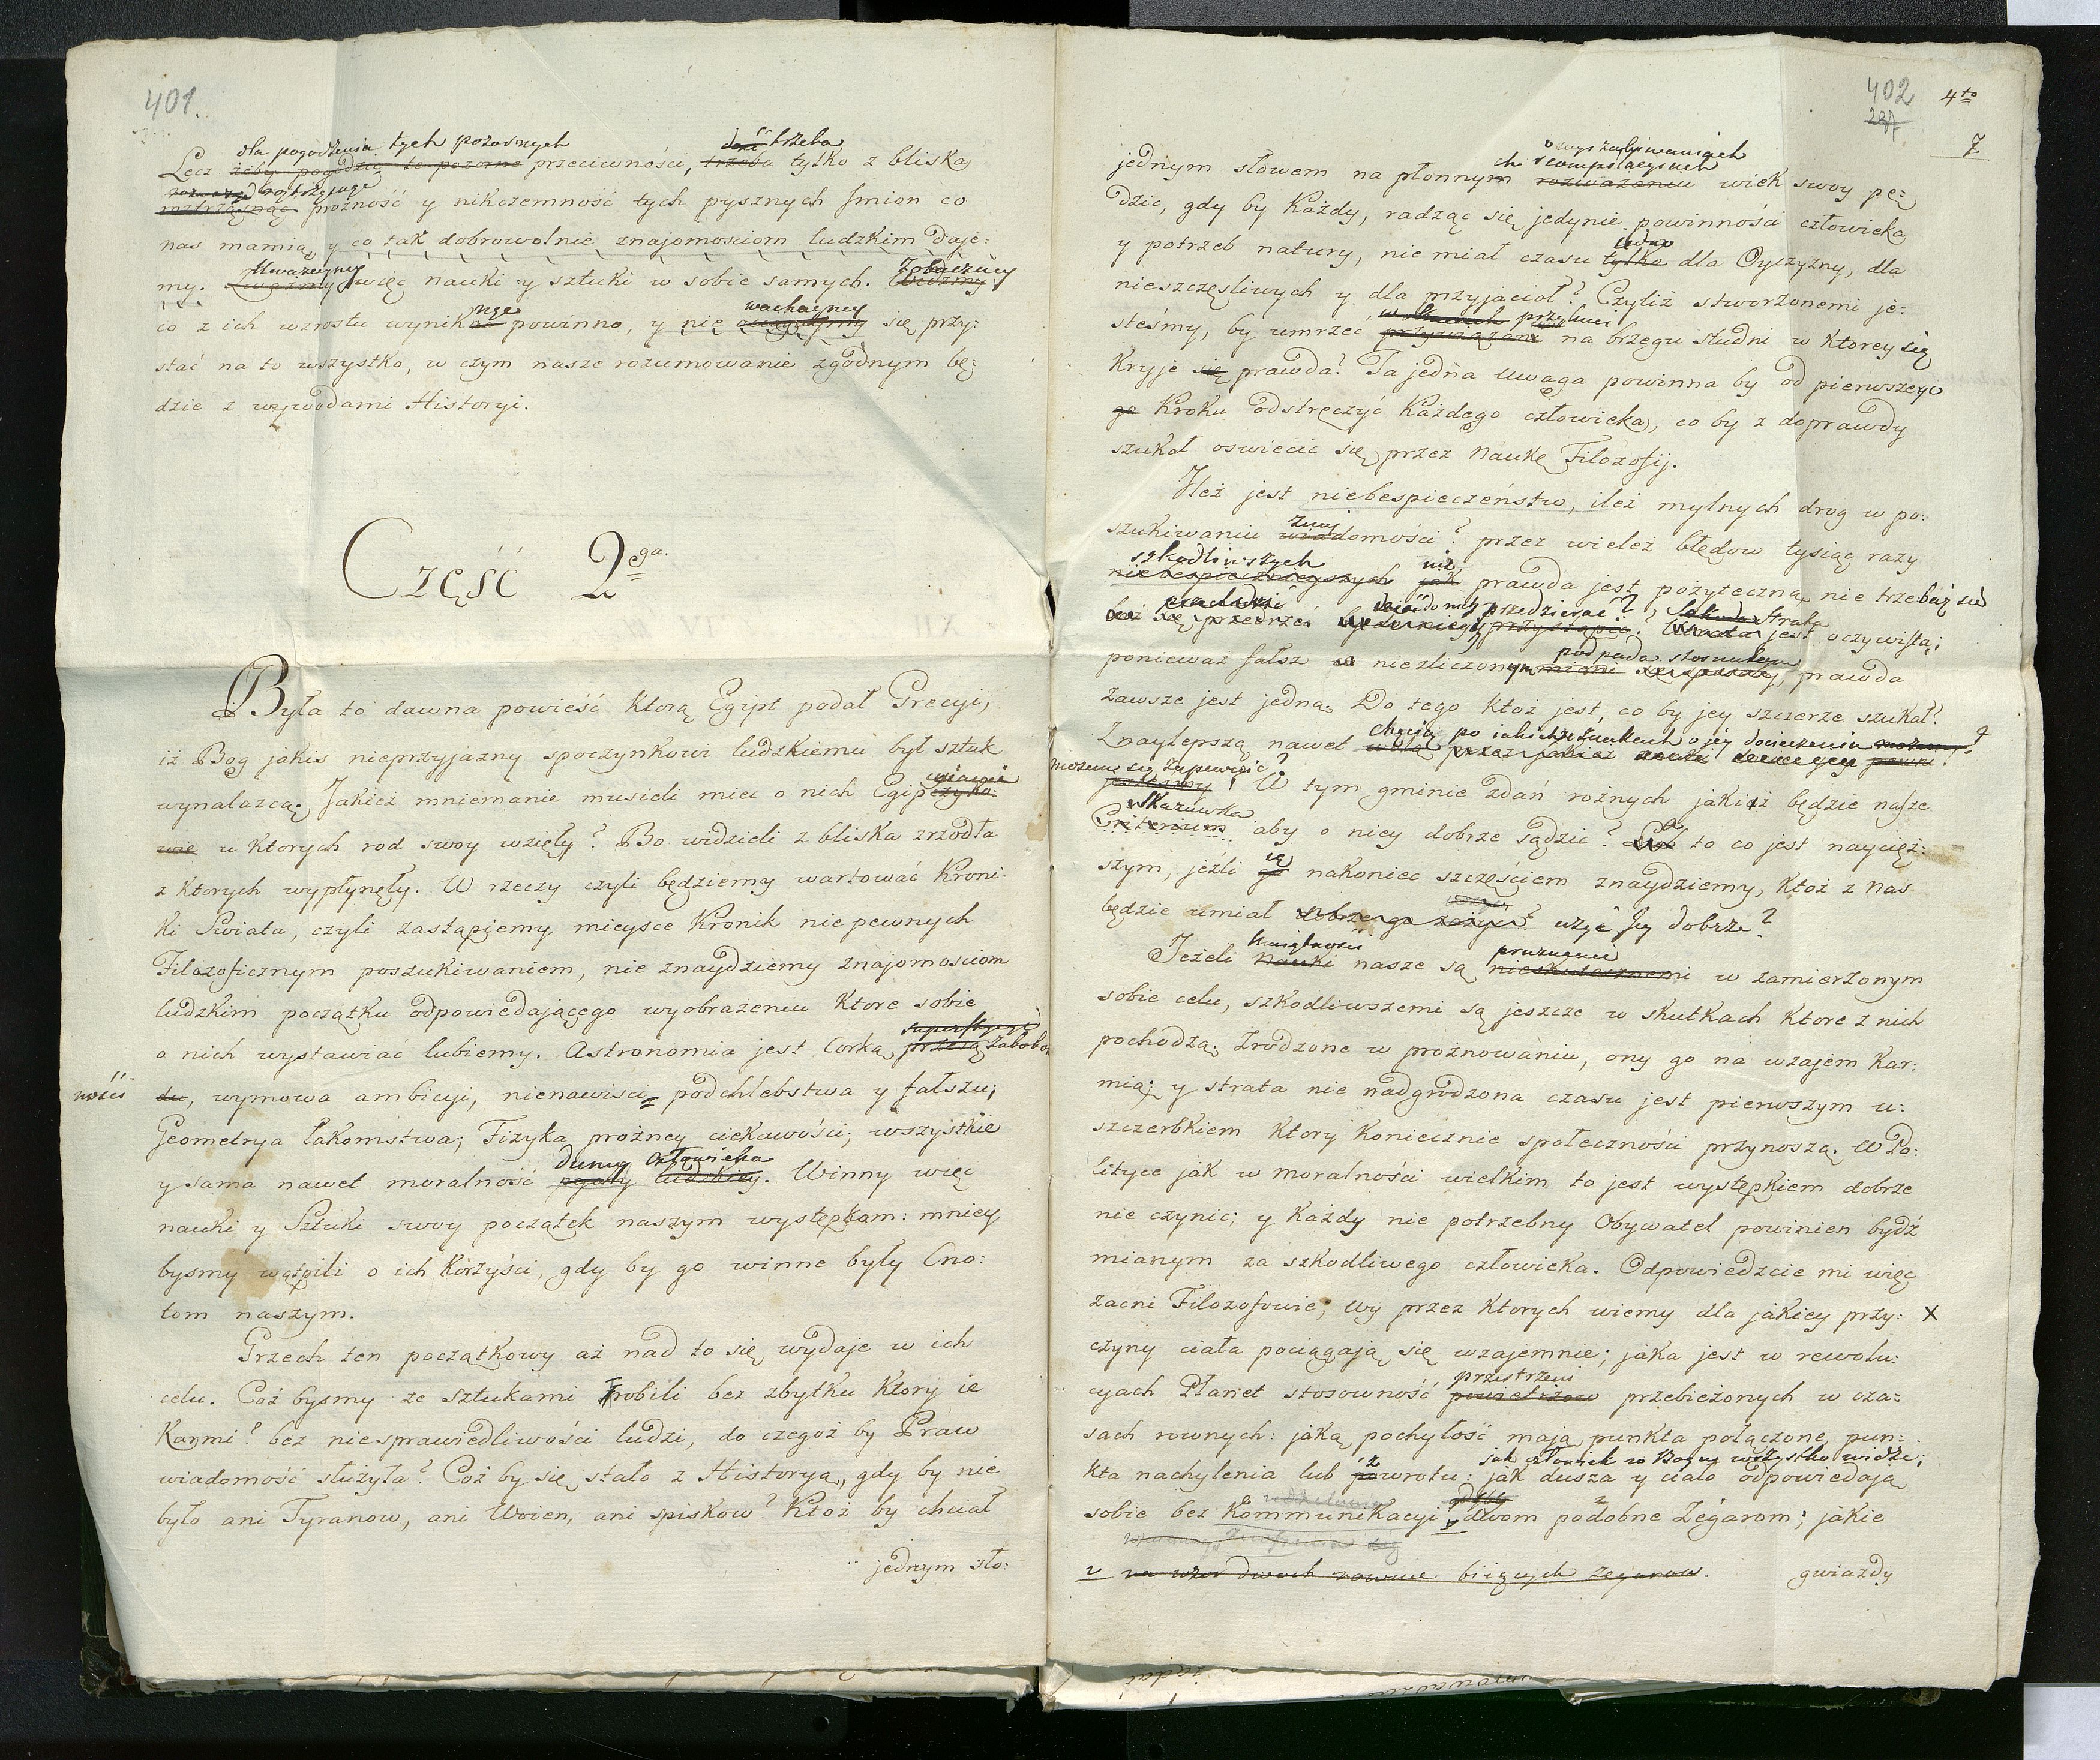 401.
dla pogodzenia tych pozornych dziś trzeba
Lecz żeby pogodzić te pozorne przeciwności, trzeba tylko z bliska
roztrząsnąć prożność y nikczemność tych pysznych Jmion co
nas mamią, y co tak dobrowolnie znajomosciom ludzkim daje:
Uważaymy Zobaczmy
my. Uważmy więc nauki y sztuki w sobie samych. Widzmy
wachaymy
co z ich wzrostu wynikać powinno, y nie się przy:
stać na to wszystko, w czym nasze rozumowanie zgodnym bę:
dzie z wywodami Historyi.
Część 2ga.
Była to dawna powieść ktorą Egipt podał Grecyi,
iż Bog jakis nieprzyjazny spoczynkowi ludzkiemu był sztuk
wynalazcą. Jakież mniemanie musieli miec o nich Egipcyano:
wie u ktorych rod swoy wzięły? Bo widzieli z bliska zrzodła
z ktorych wypłynęły. W rzeczy czyli będziemy wartować Kroni:
ki Swiata, czyli zastąpiemy mieysce Kronik nie pewnych
Filozoficznym poszukiwaniem, nie znaydziemy znajomosciom
ludzkim początku odpowiedającego wyobrażeniu ktore sobie
o nich wystawiać lubiemy. Astronomia jest Corką przesą zabobon
ności du, wymowa ambicyi, nienawisci podchlebstwa y fałszu;
Geometrya łakomstwa; Fizyka prożney ciekawości; wszystkie
dumy Człowieka
y sama nawet moralność pychy ludzkiey. Winny więc
nauki y Sztuki swoy początek naszym występkam: mniey
bysmy wątpili o ich korzyści, gdy by go winne były Cno:
tom naszym.
Grzech ten początkowy aż nad to się wydaje w ich
celu. Coż bysmy ze sztukami robili bez zbytku ktory ie
karmi? bez niesprawiedliwości ludzi, do czegoż by Praw
wiadomość służyła? Coż by się stało z Historyą, gdy by nie
było ani Tyranow, ani Woien, ani spiskow? Ktoż by chciał
jednym sło:
402 4to
237
7
jednym słowem na płonnych rozważaniu wiek swoy pę:
dzic, gdy by każdy, radząc się jedynie powinności człowieka
y potrzeb natury, nie miał czasu tylko dla Oyczyzny, dla
nieszczęsliwych y dla przyjacioł? Czyliż stworzonemi je:
steśmy, by umrzec przywiązani na brzegu studni w ktorey się
kryje się prawda? Ta jedna uwaga powinna by od pierwszego
go kroku odstręczyć każdego człowieka, co by z doprawdy
szukał oswiecic się przez Naukę Filozofij.
Ileż jest niebespieczeństw, ileż mylnych drog w po:
szukiwaniu wiadomości? przez wieleż błędow tysiąc razy
szkodliwszych niż
niebespiecznieyszych jak prawda jest pożyteczną nie trzebaż się
przedrzeć jest oczywista;
podpada stosunkom
ponieważ fałsz niezliczonym prawda
zawsze jest jedna. Do tego ktoż jest, co by jey szczerze szukał?
chęcią po jakich o jey docieczeniu
Znaylepszą nawet
możemy się zapewnić?
jesteśmy! W tym gminie zdań rożnych jakież będzie nasze
Skazuwka
Criterium aby o niey dobrze sądzic? to co jest naycięż:
szym, jeżli ią nakoniec szczęściem znaydziemy, ktoż z nas
będzie umiał dobrze go zażyć? użyć jey dobrze?
Umiejętności
Jeżeli Nauki nasze są nieskutecznemi w zamierzonym
sobie celu, szkodliwszemi są jeszcze w skutkach ktore z nich
pochodzą. Zrodzone w prożnowaniu, ony go na wzajem kar:
mią; y strata nie nadgrodzona czasu jest pierwszym u:
szczerbkiem ktory koniecznie społeczności przynoszą. W Po:
lityce jak w moralności wielkim to jest występkiem dobrze
nie czynic; y każdy nie potrzebny Obywatel powinien bydź
mianym za szkodliwego człowieka. Odpowiedzcie mi więc
zacni Filozofowie, wy przez ktorych wiemy dla jakiey przy: X
czyny ciała pociągają się wzajemnie; jaka jest w rewolu:
przestrzeni
cyach Planet stosowność powietrzow przebieżonych w cza:
sach rownych: jaką pochyłość mają punkta połączone, pun:
jak człowiek w Bogu wszystko widzi;
kta nachylenia lub zwrotu: jak dusza y ciało odpowiedają
sobie bez kommunikacyi dwom podobne Zégarom; jakie
na wzor dwoch rownie biiących zegarow. gwiazdy